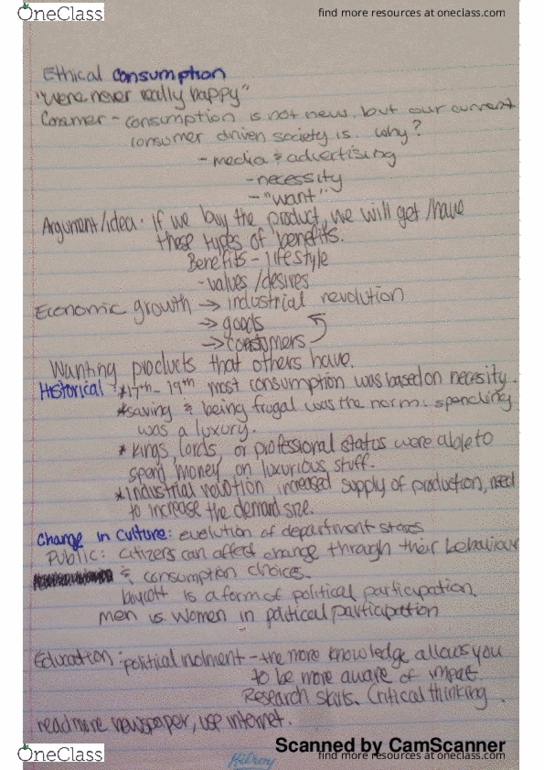 OneClass
find more resources at oneclass.com
Ethical consumption
"were never really happy"
Consumer - consumption is not new, but our current
consumer driven society is. why?
- media & advertising
- necessity
- "want"
Argument/idea: if we buy the product, we will get /have
these types of benefits.
Benefits - lifestyle
- values /desires
Economic growth → industrial revolution
→ goods
→ consumers
Wanting products that others have.
Historical *17th - 19th most consumption was based on necesity.
*saving & being frugal was the norm: spending
was a luxury.
* Kings, lords, or professional status were able to
spend money on luxurious stuff.
*Industrial volution increased supply of production, need
to increase the demand size.
Change in culture: evolution of department stores
Public: citizens can affect change through their behaviour
& consumption choices.
boycott is a form of political participation.
men vs. women in political participation
Education: political inolment - the more knowledge allows you
to be more aware of impact.
Research skills. Critical thinking.
read more newspaper, use internet.
Scanned by CamScanner
OneClass
find more resources at oneclass.com
Kilroy